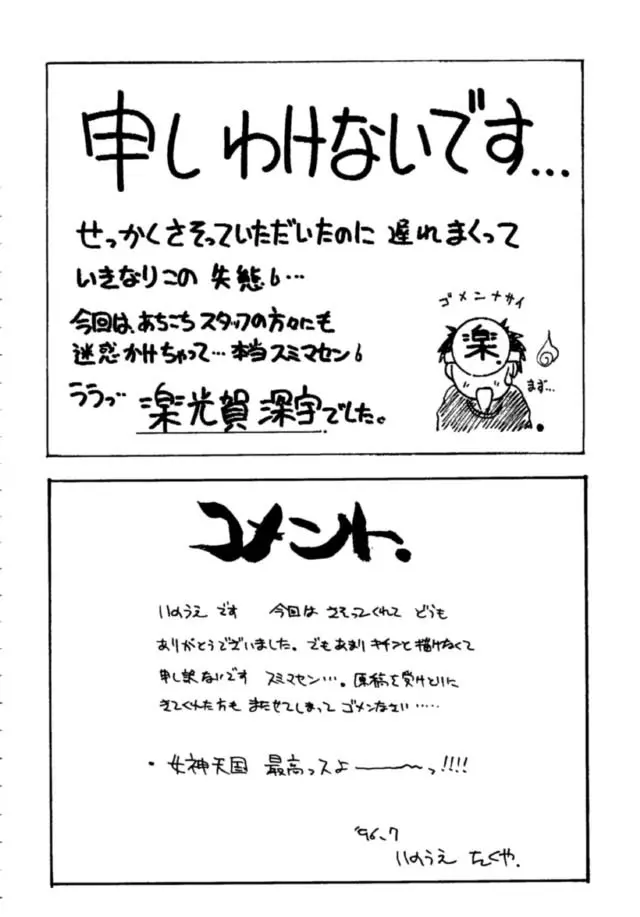 申しわけないです…
せっかくさそっていただいたのに 遅れまくって
いきなりこの 失態…
今回は、あちこち スタッフの方々にも
迷惑かけちゃって…本当スミマセン
ううっ 楽光賀 深宇でした。
ゴメンナサイ
楽
まず…
コメント.
いのうえ です 今回は さそってくれて どうも
ありがとうございました。でもあまり キチンと描けなくて
申し訳ないです スミマセン…。原稿を受けとりに
きてくれた方も またせてしまって ゴメンなさい……
・女神天国 最高っスよ――〜っ!!!!
'96.7
いのうえ たくや.